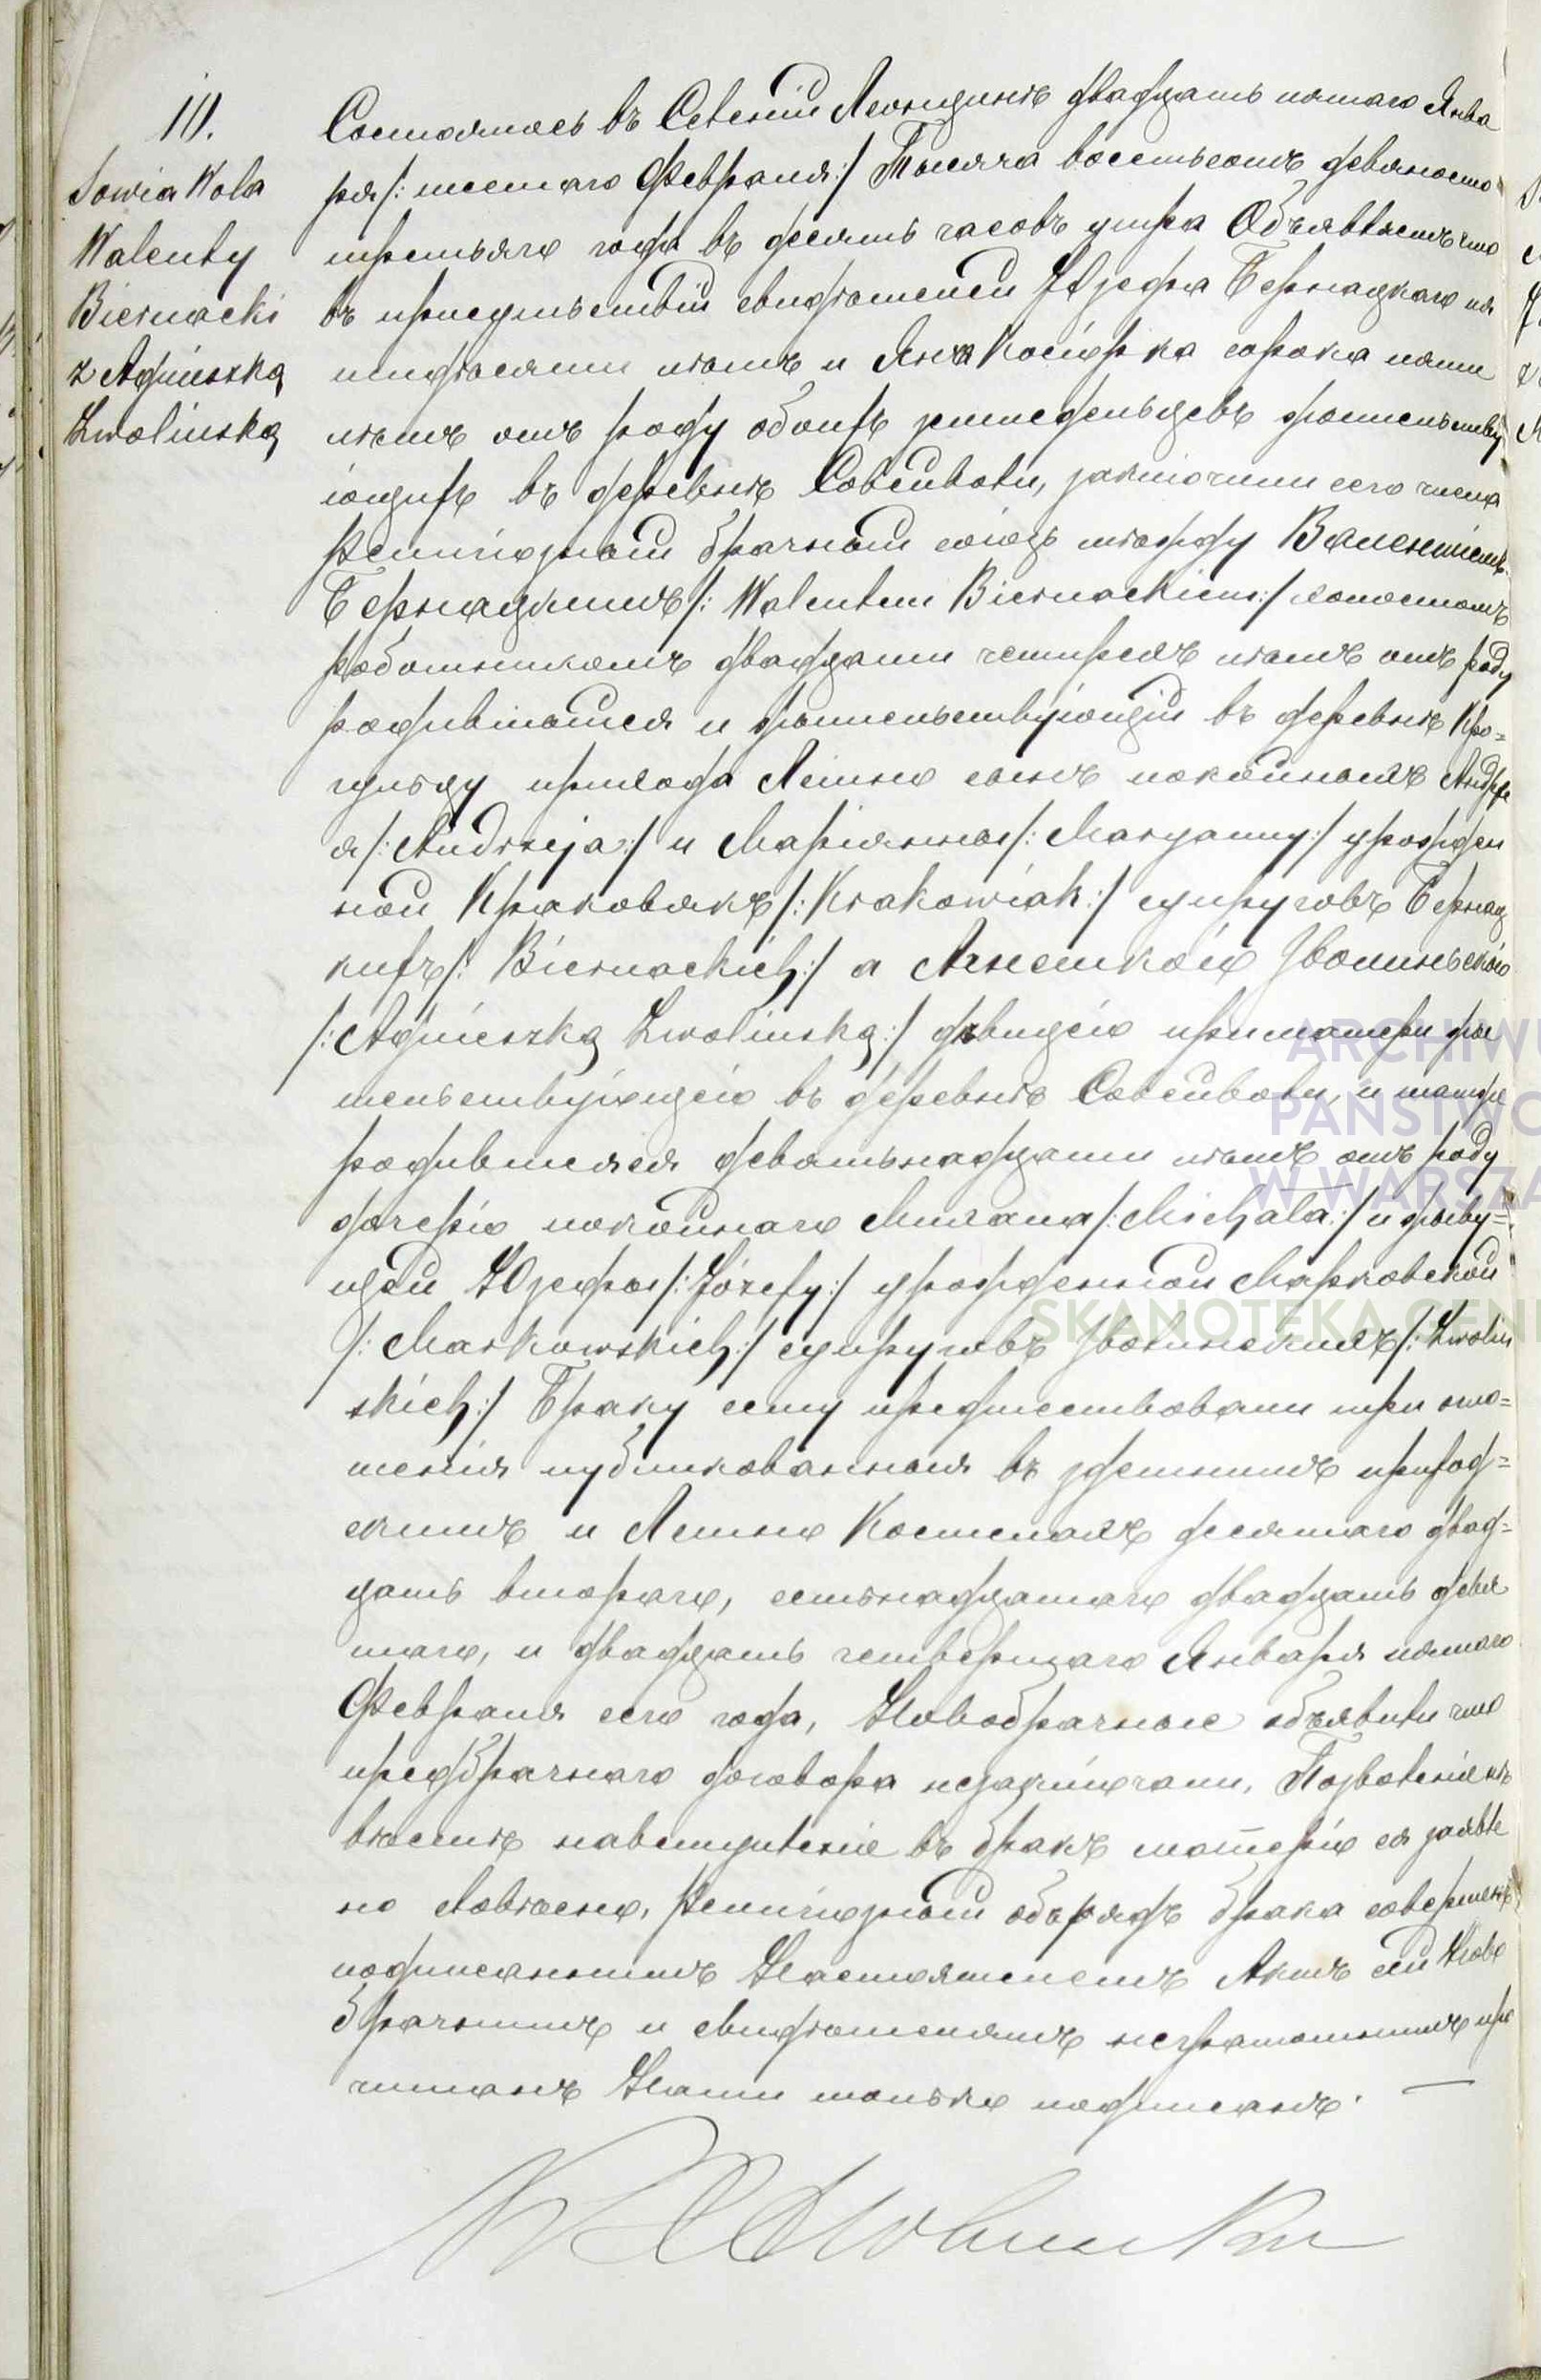 10.
Sowia Wola
Walenty
Biernacki
z Agnieszką
Zwolinską
Состоялось въ Секціи Леонцинъ двадцать пятаго Янва
ря /: шестаго Февраля :/ Тысяча восемьсотъ девяносто
третьяго года въ десять часовъ утра Объявляемъ что
въ присутствіи свидѣтелей Юзефа Бернацкаго пя
тидѣсяти лѣтъ и Яна Косіорка сорока пяти
лѣтъ отъ роду обоихъ земледельцевъ жительству
ющихъ въ деревнѣ Совейволи, заключили сего числа
Религіозный брачный союзъ между Валентіемъ
Бернацкимъ /: Walentem Biernackiem :/ холостомъ
работникомъ двадцати четырехъ лѣтъ отъ роду
родившыйся и жительствующій въ деревнѣ Кро=
чульцу прихода Лешно сынъ покойныхъ Андре
я /: Andrzeja :/ и Маріянны /: Maryanny :/ урожден
ной Краковякъ /: Krakowiak :/ супруговъ Бернац
кихъ /: Biernackich :/ а Агнешкою Зволиньскою
/: Agnieszką Zwolinską :/ дѣвицею при матери жи
тельствующею въ деревнѣ Совейволи, и тамже
родившеяся девятьнадцати лѣтъ отъ роду
дочерію покойнаго Михала /: Michała :/ и живу=
щей Юзефы /: Józefy :/ урожденной Марковской
/: Markowskich :/ супруговъ Зволинскихъ /: Zwolin
skich :/ Браку сему предшествовали три огло=
шенія публикованныя въ здешнимъ приход=
скимъ и Лешно Костелахъ десятаго двад=
цать втораго, семьнадцатаго двадцать девя
таго, и двадцать четвертаго Января пятаго
Февраля сего года, Новобрачные объявили что
предбрачнаго договора незаключали, Позволеніе нѣ
вѣсте навступленіе въ бракъ матерію ея заявле
но словѣсно, Религіозный обърядъ брака совершенъ
подписаннымъ Настоятелемъ Актъ сей Ново
брачнымъ и свидѣтелямъ неграмотнымъ про
читанъ Нами только подписанъ. —
ARCHIWU
PAŃSTWO
W WARSZA
SKANOTEKA GENE